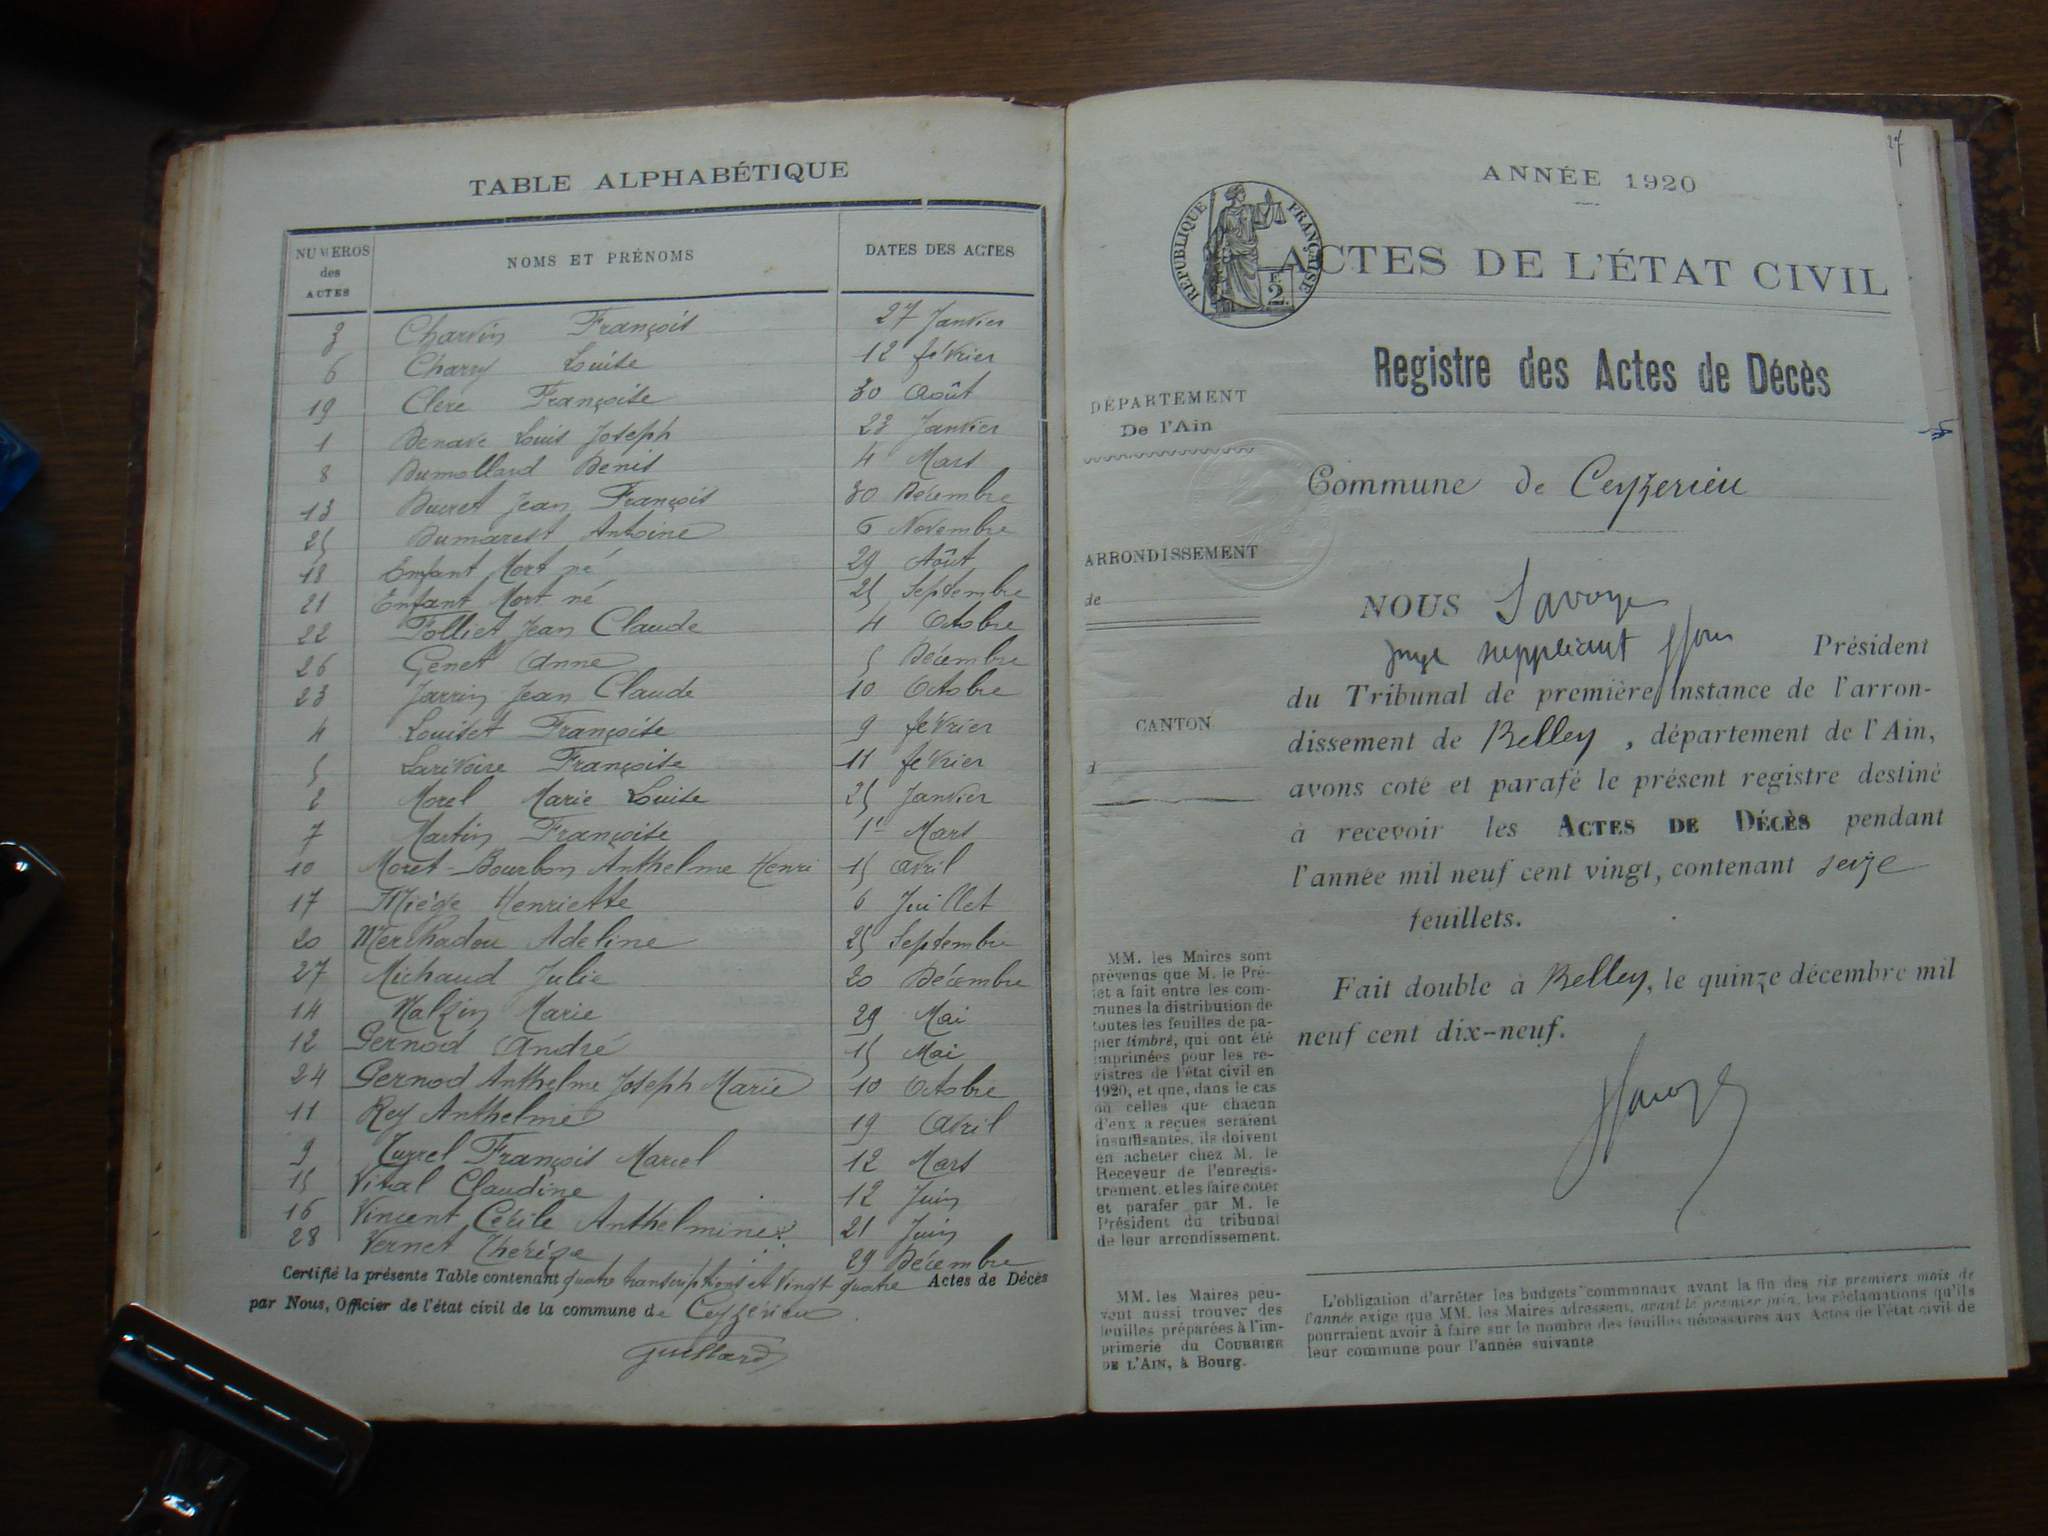 TABLE ALPHABÉTIQUE
NUMEROS des ACTES NOMS ET PRÉNOMS DATES DES ACTES
3 Charvin François 27 Janvier
6 Charvy Louise 12 février
19 Clerc Françoise 30 Août
1 Benave Louis Joseph 23 Janvier
8 Dumollard Denis 4 Mars
13 Ducret Jean François 30 Décembre
25 Dumarest Antoine 6 Novembre
18 Enfant Mort né 29 Août
21 Enfant Mort né 25 Septembre
22 Folliet Jean Claude 4 Octobre
26 Genet Anne 5 Décembre
23 Jarrin Jean Claude 10 Octobre
4 Louiset Françoise 9 février
5 Larivoire Françoise 11 février
2 Morel Marie Louise 25 Janvier
7 Martin Françoise 1er Mars
10 Moret-Bourbon Anthelme Henri 15 Avril
17 Miège Henriette 6 Juillet
20 Merchadou Adeline 25 Septembre
27 Michaud Julie 20 Décembre
14 Nalzin Marie 29 Mai
12 Pernod André 15 Mai
24 Pernod Anthelme Joseph Marie 10 Octobre
11 Rey Anthelme 19 Avril
9 Turrel François Marcel 12 Mars
15 Vital Claudine 12 Juin
16 Vincent Cécile Anthelmine 21 Juin
28 Vernet Thérèse 29 Décembre
Certifié la présente Table contenant quatre transcriptions et vingt quatre Actes de Décès
par Nous, Officier de l'état civil de la commune de Ceyzérieu
Guillard
27
ANNÉE 1920
RÉPUBLIQUE FRANÇAISE
2
ACTES DE L'ÉTAT CIVIL
Registre des Actes de Décès
DÉPARTEMENT
De l'Ain
Commune de Ceyzerieu
ARRONDISSEMENT
de
CANTON
d
NOUS Savoye
juge suppléant ffons Président
du Tribunal de première instance de l'arron-
dissement de Belley, département de l'Ain,
avons coté et parafé le présent registre destiné
à recevoir les ACTES DE DÉCÈS pendant
l'année mil neuf cent vingt, contenant seize
feuillets.
Fait double à Belley, le quinze décembre mil
neuf cent dix-neuf.
Savoye
MM. les Maires sont
prévenus que M. le Pré-
fet a fait entre les com-
munes la distribution de
toutes les feuilles de pa-
pier timbré, qui ont été
imprimées pour les re-
gistres de l'état civil en
1920, et que, dans le cas
où celles que chacun
d'eux a reçues seraient
insuffisantes, ils doivent
en acheter chez M. le
Receveur de l'enregis-
trement, et les faire coter
et parafer par M. le
Président du tribunal
de leur arrondissement.
MM. les Maires peu-
vent aussi trouver des
feuilles préparées à l'im-
primerie du COURRIER
DE L'AIN, à Bourg.
L'obligation d'arrêter les budgets communaux avant la fin des six premiers mois de
l'année exige que MM. les Maires adressent, avant le premier juin, les réclamations qu'ils
pourraient avoir à faire sur le nombre des feuilles nécessaires aux Actes de l'état civil de
leur commune pour l'année suivante